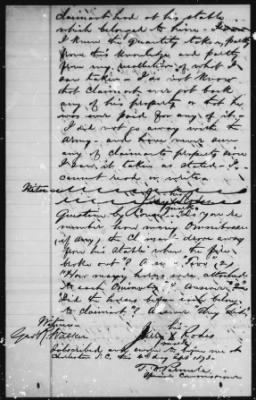 claimant had at his stable
which belonged to him - I know
I knew the quantity taken partly
from this knowledge and partly
from my recollection of what I
saw taken - I do not know
that claimant ever got back
any of his property or that he
was ever paid for any of it -
I did not go away with the
Army - and have never seen
any of claimants property since
I saw it taken as stated - I
cannot read or write -
his
mark
Question by Counsel - Do you re-
member how many Omnibuses
(if any) the Claimant drove away
from his stable when the fire
broke out? Answer Two (2)
"How many horses were attached
to each Omnibus"? Answer
Did the horses belong
to claimant? Answer They did
Witness
his
Geo. Walker
X
mark
Subscribed and sworn to before me at
Charleston S.C. this 4th day Sept 1873.
Special Commissioner